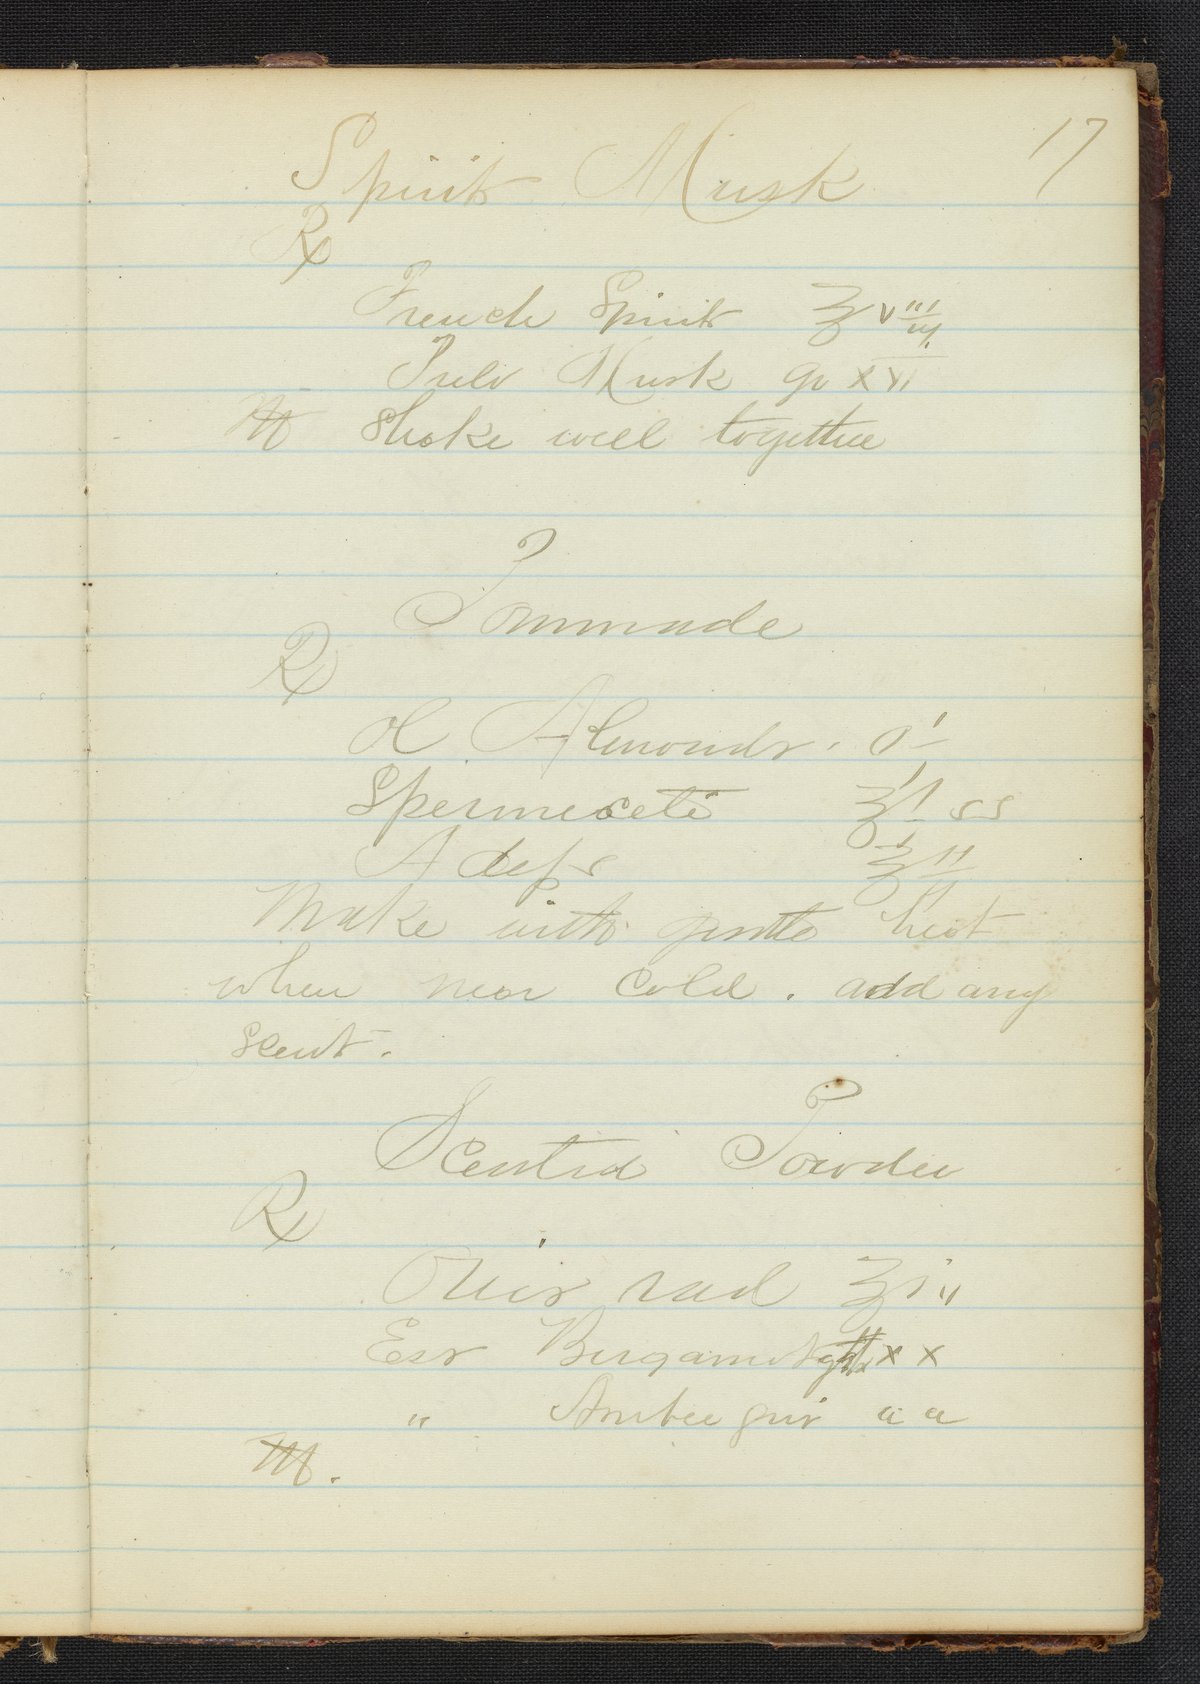 17
Spirit Musk
℞
French Spirit ℥ viii
Pulv Musk gr xvi
M Shake well together
Pommade
℞
Ol Almonds. O i
Spermeceti ℥ i ss
Adeps ℥ ii
Make with gentle heat
when near cold. add any
scent.
Scented Powder
℞
Oris rad ℥ i
Ess Bergamot xx
" Ambergris
M.